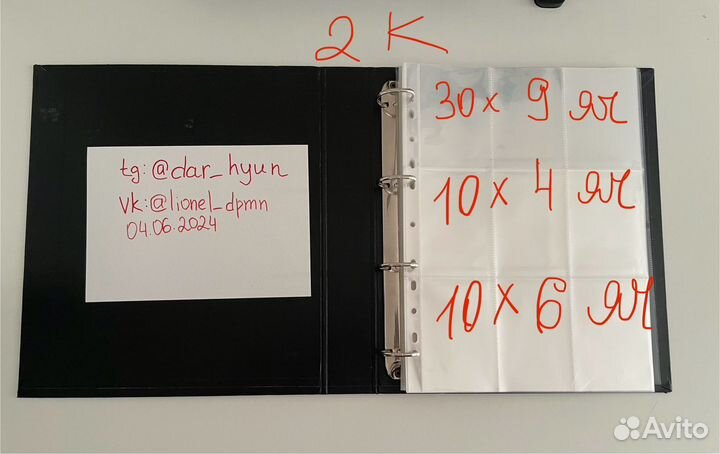 2 К
tg:@dar_hyun
vk:@lionel_dpmn
04.06.2024
30 x 9 яч
10 x 4 яч
10 x 6 яч
Avito